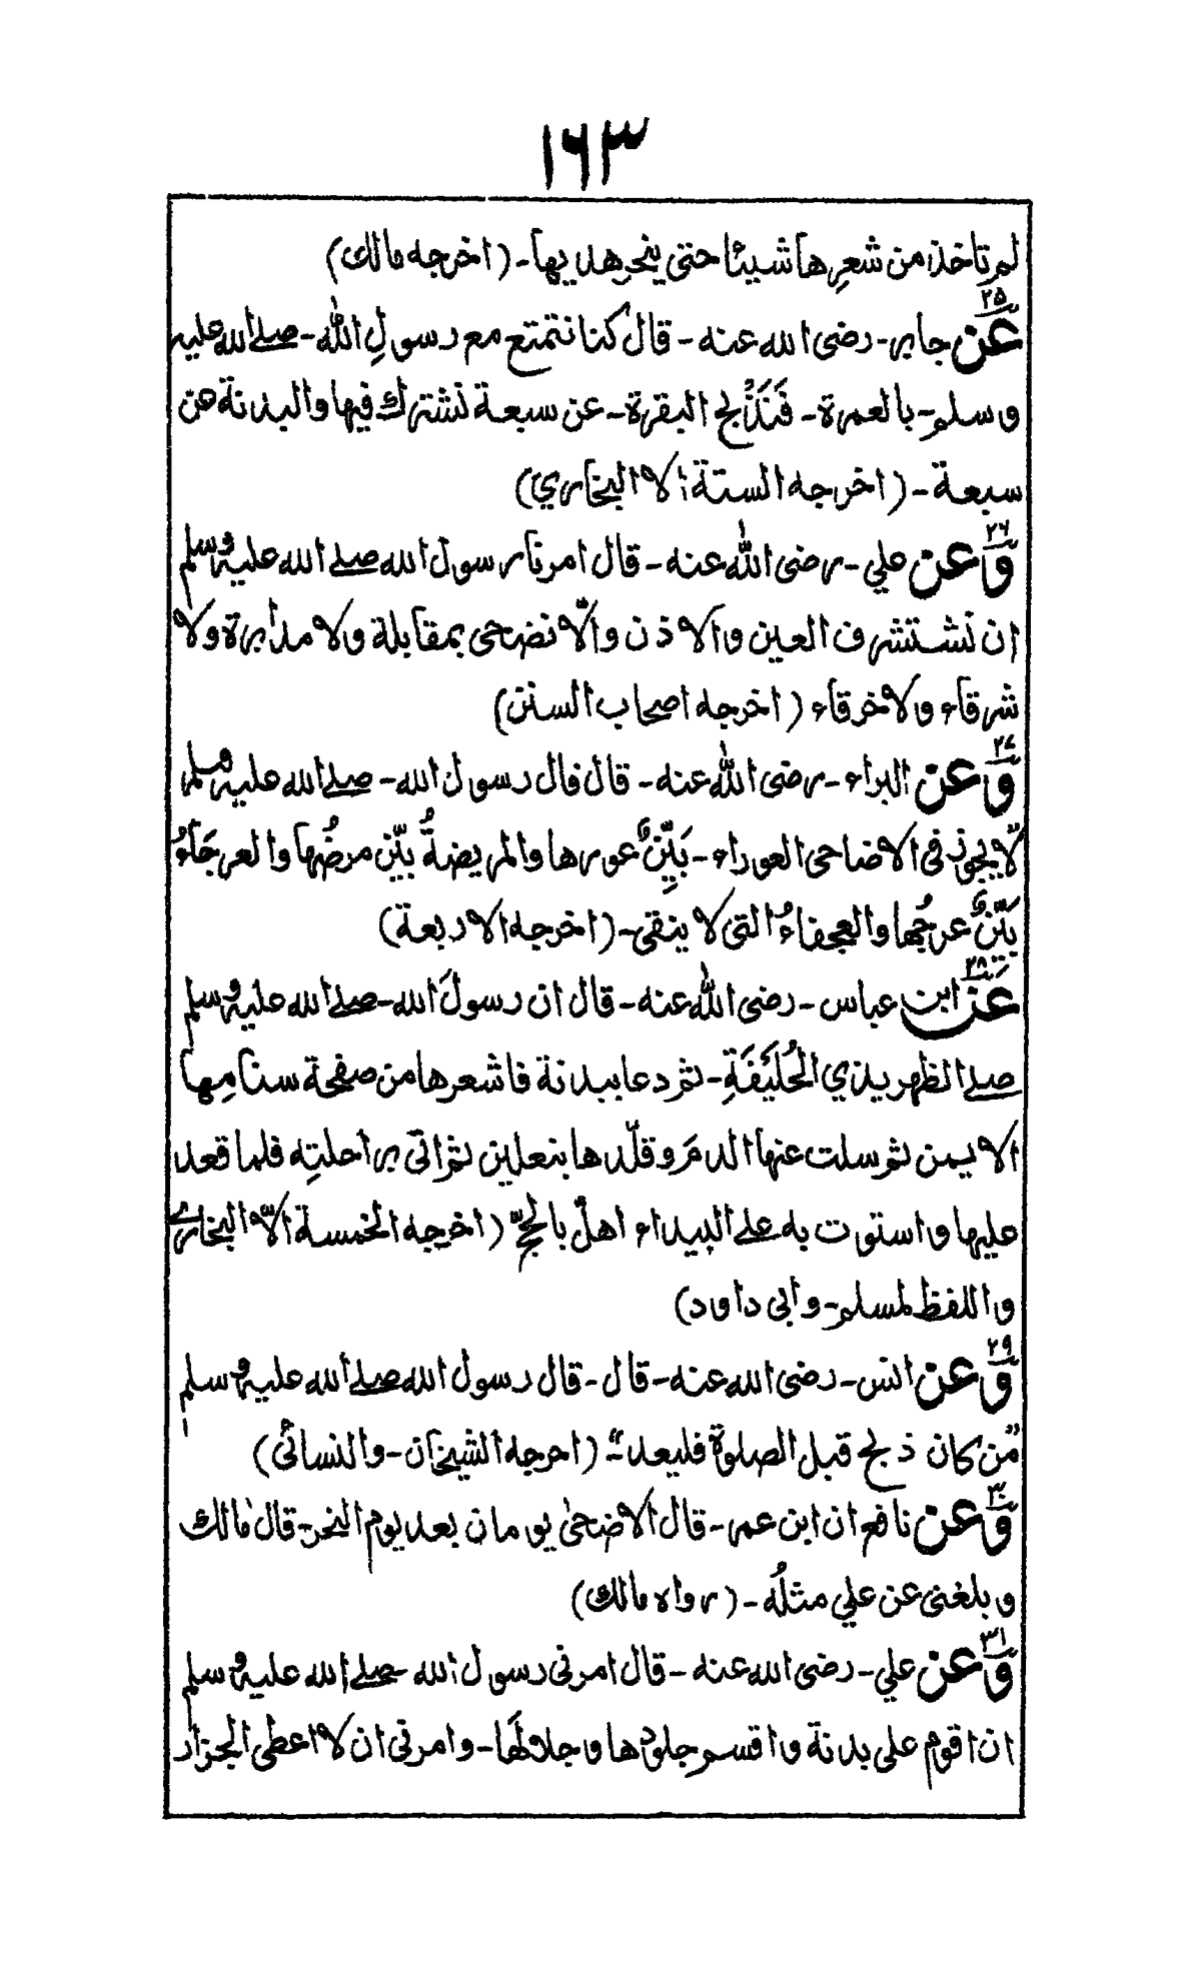 ١٦٣
لم تاخذ من شعرِها شيئا حتى ينحرِ هديها - (اخرجه مالك)
٢٥
عن جابر - رضى الله عنه - قال كنا نتمتع مع رسولِ الله - صلے الله عليه
وسلم - بالعمرة - فَنَذْبح البقرة - عن سبعة نشترك فيها والبدنة عن
سبعة - (اخرجه الستة الا البخاري)
٢٦
وَعن علي - رضى الله عنه - قال امرنا رسول الله صلے الله عليه وسلم
ان نستشرف العين والاذن والّا نضحى بمقابلة ولا مدابرة ولا
شرقاء ولا خرقاء (اخرجه اصحاب السنن)
٢٧
وَعن البراء - رضى الله عنه - قال قال رسول الله - صلے الله عليه وسلم
لّا يجوز فى الاضاحى العوراء - بَيِّنٌ عورها والمريضةُ بيّن مرضُها والعرجَاءُ
بَيّنٌ عرجُها والعجفاءُ التى لا ينقى - (اخرجه الاربعة)
٢٨
عَن ابن عباس - رضى الله عنه - قال ان رسولَ الله - صلے الله عليه وسلم
صلے الظهر بذي الحُلَيَفَةِ - ثم دعا ببدنة فاشعرها من صفحة سنامِها
الايمن ثم سلت عنها الدمَ وقلّدها بنعلين ثم اتى براحلتِه فلما قعد
عليها واستوت به علے البيداء اهلّ بالحجّ (اخرجه الخمسة الّا البخارے
واللفظ لمسلم - وابى داود)
٢٩
وَعن انس - رضى الله عنه - قال - قال رسول الله صلے الله عليه وسلم
"من كان ذبح قبل الصلوة فليعد" - (اخرجه الشيخان - والنسائى)
٣٠
وَعن نافع ان ابن عمر - قال الاضحىٰ يومان بعد يوم النحر - قال مالك
وبلغنى عن علي مثلُه - (رواه مالك)
٣١
وَعن علي - رضى الله عنه - قال امرنى رسول الله صلے الله عليه وسلم
ان اقوم على بدنة واقسم جلودها وجلالَها - وامرنى ان لا اعطى الجزار